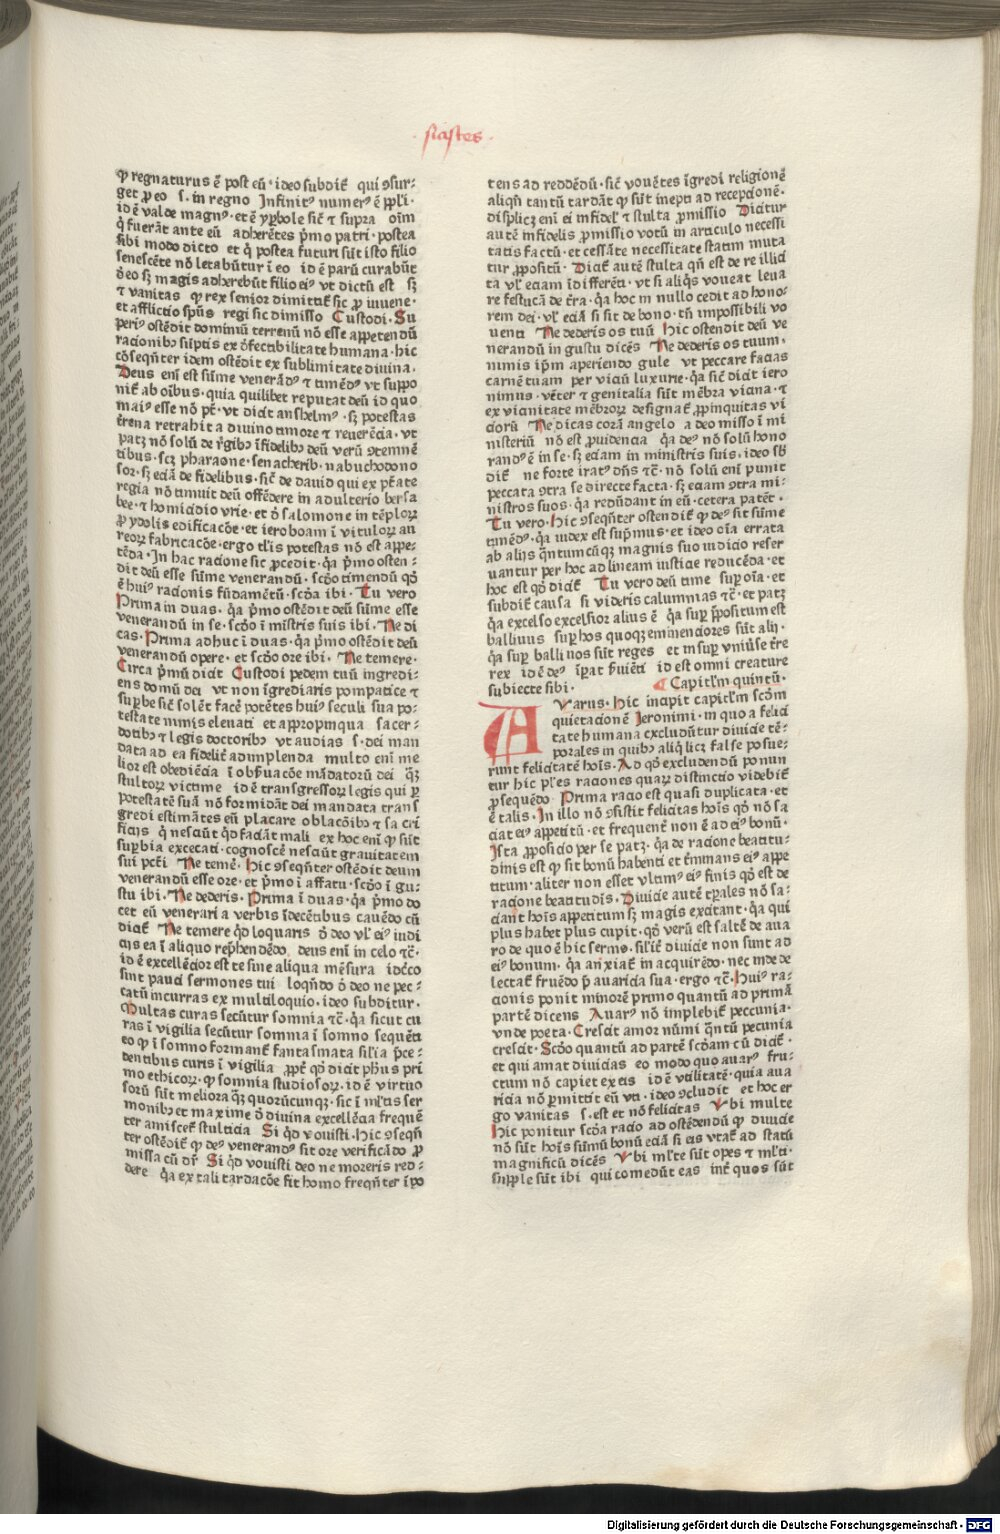 ·siastes·
ꝙ regnaturus ē post eū · ideo subdit̄ qui ꝯsur⸗
get ꝓ eo s. in regno Infinitꝰ numerꝰ ē ppl̄i ·
id ē valde magnꝰ · et ē yꝑbole sic̄ ⁊ supra oīm
q̄ fuerāt ante eū adherētes pͥmo patri · postea
sibi modo dicto et q̄ postea futuri sūt isto filio
senescēte nō letabūtur ī eo id ē parū curabūt
ꝺeo sꝫ magis adherebūt filio eiꝰ vt dictū est sꝫ
⁊ vanitas ꝙ rex senior dimittit̄ sic ꝓ iuvene ·
et afflictio spūs regi sic dimisso Custodi · Su
periꝰ ostēdit dominiū terrenū nō esse appetendū
racionibꝰ sūptis ex ꝺfectibilitate humana · hic
cōseqn̄ter idem ostēdit ex sublimitate divina ·
Deus eni est sūme venerādꝰ ⁊ timēdꝰ vt suppo
nit̄ ab oībus · quia quilibet reputat deū id quo
maiꝰ esse nō pt̄ · vt dicit anshelmꝰ · sꝫ potestas
t̄rena retrahit a divino timore ⁊ reverēcia · vt
patꝫ nō solū de r̄gibꝫ īfidelibꝫ deū verū ꝯtemnē
tibus · scꝫ pharaone · senacherib · nabuchodono
sor · sꝫ eciā de fidelibus · sic̄ de david qui ex ptāte
regia nō timuit deū offēdere in adulterio bersa
bee · ⁊ homicidio vrie · et ꝺ salomone in tēploꝝ
ꝓ ydolis edificacōe · et ieroboam ī vituloꝝ au
reoꝝ fabricacōe · ergo tl̄is potestas nō est appe⸗
tēda · In hac racione sic ꝓcedit · qͣ pͥmo osten⸗
dit deū esse sūme venerandū · scd̓o timendū qd̓
ē huiꝰ racionis fūdamētū · scd̓a ibi · Tu vero
Prima in duas · qͣ pͥmo ostēdit deū sūme esse
venerandū in se · scd̓o ī mīstris suis ibi · Ne di
cas · Prima adhuc ī duas · qͣ pͥmo ostēdit deū
venerandū opere · et scd̓o ore ibi · Ne temere ·
Circa pͥmū dicit Custodi pedem tuū ingredi⸗
ens domū dei vt non īgrediaris pompatice ⁊
suꝑbe sic̄ solēt facē potētes huiꝰ seculi sua po⸗
testate nimis elevati et appropinqua sacer⸗
dotibꝫ ⁊ legis doctoribꝫ vt audias s. dei man
data ad ea fidelit̄ adimplenda multo eni me
lior est obediēcia ī obs̄uacōe mādatorū dei qͣꝫ
stultoꝝ victime id ē transgressoꝝ legis qui ꝑ
potestatē suā nō formidāt dei mandata trans
gredi estimātes eū placare oblacōibꝫ ⁊ sacri
ficijs q̄ nesciūt qd̓ faciāt mali ex hoc enī ꝙ sūt
suꝑbia excecati · cognoscē nesciūt gravitatem
sui pct̄i Ne temē · Hic ꝯseqn̄ter ostēdit deum
venerandū esse ore · et pͥmo ī affatu · scd̓o ī gu⸗
stu ibi · Ne dederis · Prima ī duas · qͣ pͥmo do
cet eū venerari a verbis īdecētibus cavēdo cū
dicit̄ Ne temere qd̓ loquaris ꝺ deo vl̓ eiꝰ iudi
cijs ea ī aliquo rep̄hendēdo deus eni in celo ⁊c̄ ·
id ē excellēcior est te sine aliqua mēsura idcīco
sint pauci sermones tui loqn̄do ꝺ deo ne pec⸗
catū incurras ex multiloquio · ideo subditur ·
Multas curas secūtur somnia ⁊c̄ · qͣ sicut cu
ras ī vigilia secūtur somnia ī somno sequēti
eo ꝙ ī somno formant̄ fantasmata sil̄ia p̄ce⸗
dentibus curis ī vigilia ꝓpt̄ qd̓ dicit ph̄us pri
mo ethicoꝝ · ꝙ somnia studiosoꝝ · id ē virtuo
sorū sūt meliora qͣꝫ quorūcunqꝫ · sic ī ml̓tis ser
monibꝫ et maxime ꝺ divina excellēcia frequē
ter amiscet̄ stulticia Si qd̓ vovisti · Hic ꝯseqn̄
ter ostēdit̄ ꝙ deꝰ venerandꝰ sit ore verificādo ꝓ
missa cū dr̄ Si qd̓ vovisti deo ne moreris red⸗
dere qͣ ex tali tardacōe fit homo freqn̄ter īpo
tens ad reddēdū · sic̄ vovētes īgredi religionē
aliqn̄ tantū tardāt ꝙ sūt inepti ad recepcionē ·
displicꝫ eni ei infidel̓ ⁊ stulta ꝓmissio Dicitur
autē infidelis ꝓmissio votū in articulo necessi
tatis factū · et cessāte necessitate statim muta
tur ꝓpositū · Dicit̄ autē stulta qn̄ est de re illici
ta vl̓ eciam īdifferēti · vt si aliqͥs voveat leva
re festucā de t̄ra · qͣ hoc in nullo cedit ad hono⸗
rem dei · vl̓ eciā si sit de bono · tn̄ impossibili vo
venti Ne dederis os tuū Hic ostendit deū ve
nerandū in gustu dicēs Ne dederis os tuum ·
nimis ip̄m aperiendo gule vt peccare facias
carnē tuam per viam luxurie · qͣ sic̄ dicit iero
nimus · vēter ⁊ genitalia sūt mēbra vicina · ⁊
ex vicinitate mēbroꝝ designat̄ ꝓpinquitas vi
ciorū Ne dicas corā angelo a deo misso ī mi
nisteriū nō est ꝓuidencia qͣ deꝰ nō solū hono
randꝰ ē in se · sꝫ eciam in ministris suis · ideo sb̄
dit̄ ne forte iratꝰ dn̄s ⁊c̄ · nō solū eni punit
peccata ꝯtra se directe facta · sꝫ eciam ꝯtra mi⸗
nistros suos · qͣ redūdant in eū · cetera patēt ·
Tu vero · Hic ꝯseqn̄ter ostendit̄ ꝙ deꝰ sit sūme
timēdꝰ · qͣ iudex est sup̄mus · et ideo oīa errata
ab alijs qn̄tumcūqꝫ magnis suo iudicio reser
vantur per hoc ad lineam iusticie reducēda · et
hoc est qd̓ dicit̄ Tu vero deū time suꝑ oīa · et
subdit̄ causa si videris calumnias ⁊c̄ · et patꝫ
qͣ excelso excelsior alius ē qͣ suꝑ p̄positum est
ballivus suꝑ hos quoqꝫ eminenciores sūt alij ·
qͣ suꝑ ballivos sūt reges et insuꝑ vniūse t̄re
rex id ē deꝰ īperat s̄uiēti id est omni creature
subiecte sibi · ¶ Capitl̄m quintū ·
AVarus · Hic incipit capitl̄m scd̓m
quietacionē Jeronimi · in quo a felici
tate humana excludūtur divicie tē⸗
porales in quibꝫ aliqͥ licꝫ false posue⸗
runt felicitatē hoīs · Ad qd̓ excludendū ponun
tur hic pl̄es raciones quaꝝ distinctio videbit̄
ꝓsequēdo Prima racio est quasi duplicata · et
ē talis · In illo nō ꝯsistit felicitas hoīs qd̓ nō sa
ciat eiꝰ appetitū · et frequent̄ non ē ad eiꝰ bonū ·
Ista ꝓposicio per se patꝫ · qͣ de racione beatitu⸗
dinis est ꝙ sit bonū habenti et t̄minans eiꝰ appe
titum · aliter non esset vltimꝰ eiꝰ finis qd̓ est de
racione beatitudīs · Divicie autē tꝑales nō sa⸗
ciant hoīs appetitum sꝫ magis excitant · qͣ qui
plus habet plus cupit · qd̓ verū est saltē de ava
ro de quo ē hic sermo · sil̓it̄ divicie non sunt ad
eiꝰ bonum · qͣ anxiat̄ in acquirēdo · nec inde de
lectat̄ fruēdo ꝓ avaricia sua · ergo ⁊c̄ · Huiꝰ ra⸗
cionis ponit minorē primo quantū ad primā
partē dicens Avarꝰ nō implebit̄ peccunia ·
vnde poeta · Crescit amor nūmi qn̄tū pecunia
crescit · Scd̓o quantū ad partē scd̓am cū dicit̄ ·
et qui amat divicias eo modo quo avarꝰ fru⸗
ctum nō capiet ex eis id ē vtilitatē · quia ava
ricia nō ꝑmittit eū vti · ideo ꝯcludit et hoc er
go vanitas s. est et nō felicitas Vbi multe
Hic ponitur scd̓a racio ad ostēdendū ꝙ divicie
nō sūt hoīs sūmū bonū eciā si eis vtat̄ ad statū
magnificū dicēs Vbi ml̓te sūt opes ⁊ ml̓ti ·
supple sūt ibi qui comedūt eas int̄ quos sūt
Digitalisierung gefördert durch die Deutsche Forschungsgemeinschaft - DFG